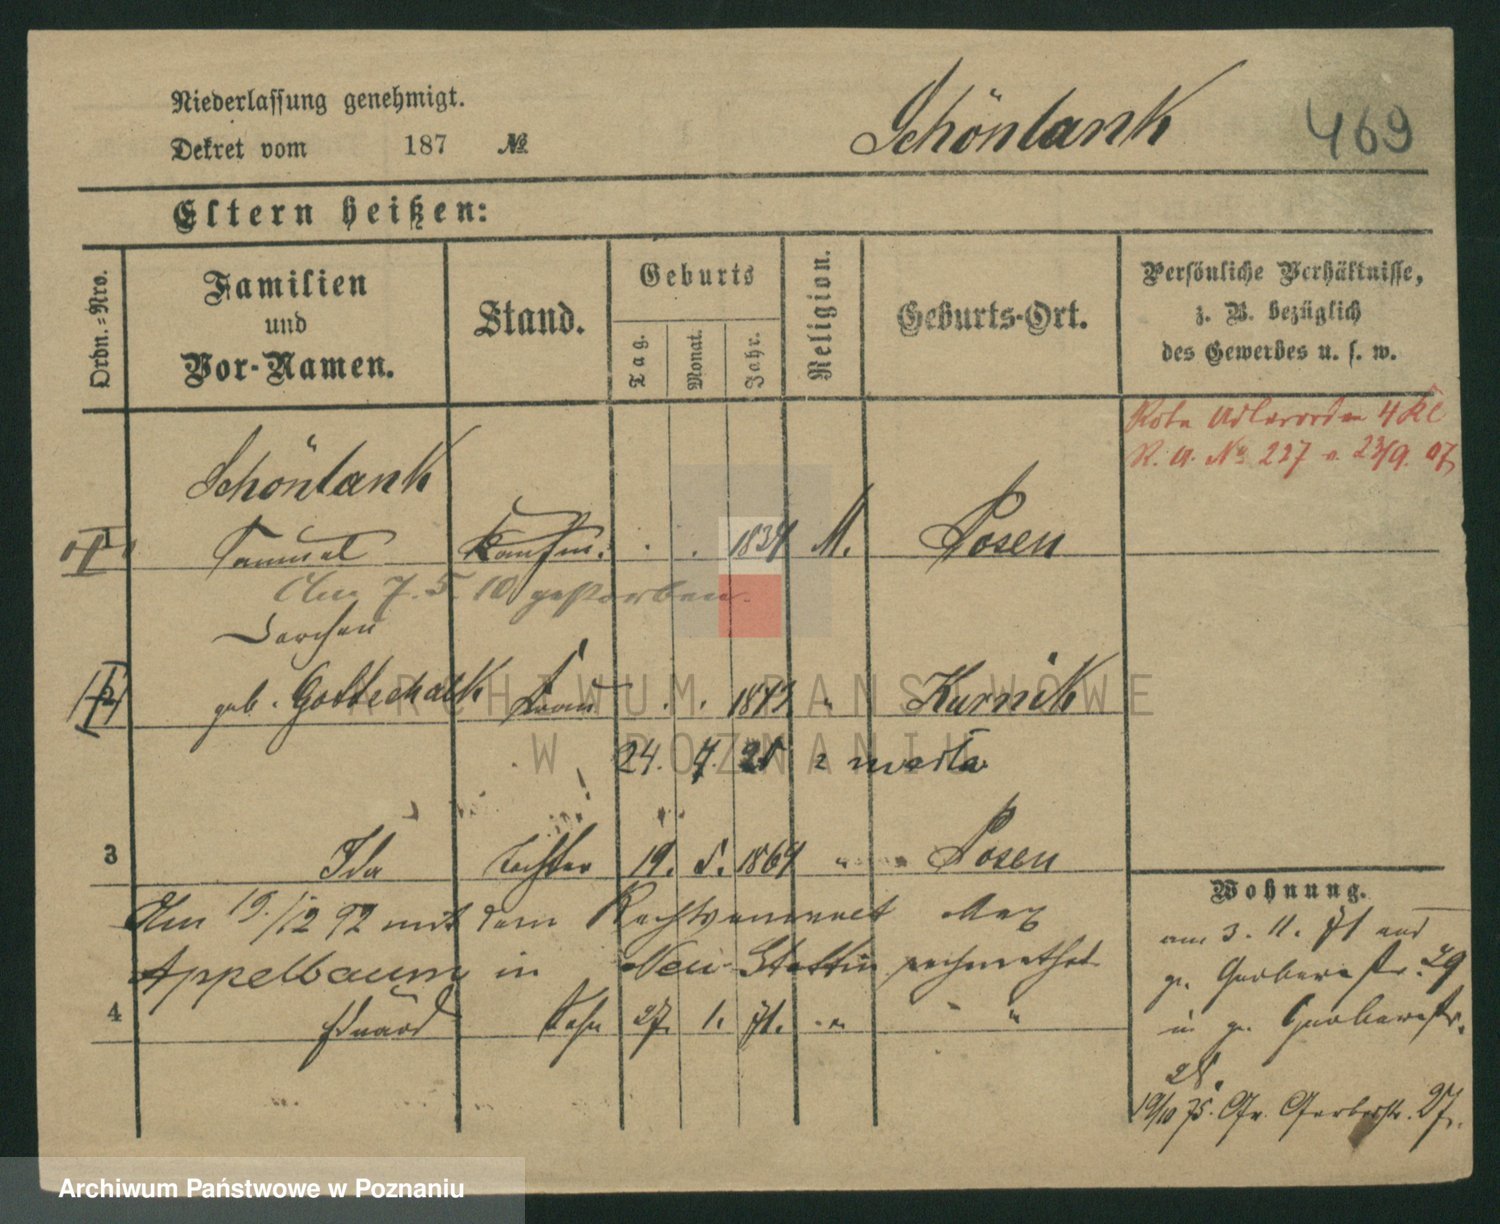 Niederlassung genehmigt.
Dekret vom 187 №
Schönlank
469
Eltern heißen:
Ordn.-Nro.
Familien
und
Vor-Namen.
Stand.
Geburts
Tag.
Monat.
Jahr.
Religion.
Geburts-Ort.
Persönliche Verhältnisse,
z. B. bezüglich
des Gewerbes u. s. w.
Rote Adlerorden 4 Kl
R. A. № 227 v. 23/9. 07
Schönlank
1 Samuel Kaufm. 1837 M. Posen
Am 7. 5. 10 gestorben.
Dorchen
2 geb. Gottschalk Frau 1843 " Kurnik
24. 7. 21
3 Ida Tochter 19. 5. 1867 " Posen
Am 19./12 92 mit dem Rechtsanwalt Max
Appelbaum in Neu-Stettin
4 Eduard Sohn 27. 1. 71. " "
Wohnung.
am 3. 11. 71 aus
gr. Gerberstr. 29
in gr. Gerberstr.
28.
19/10 75. Gr. Gerberstr. 27.
ARCHIWUM PAŃSTWOWE
W POZNANIU
Archiwum Państwowe w Poznaniu